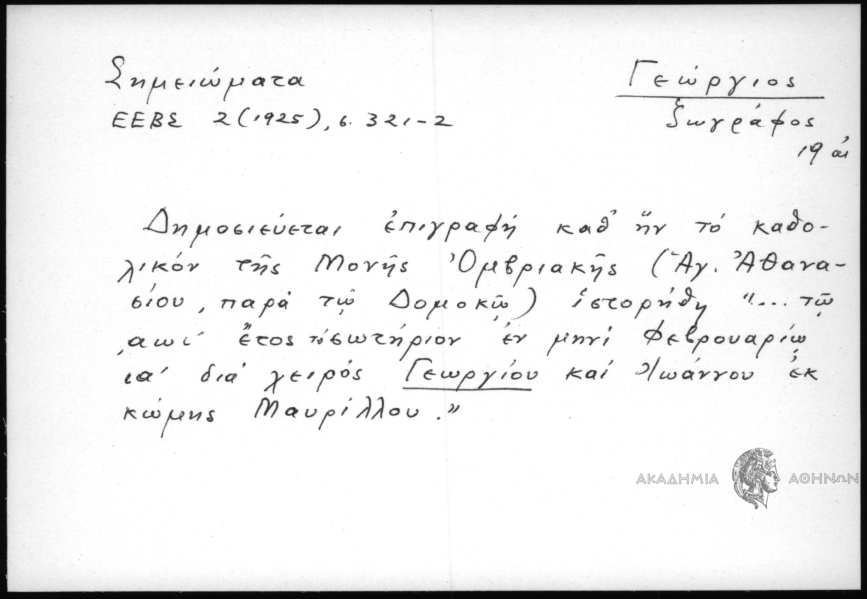 Σημειώματα
ΕΕΒΣ 2 (1925), σ. 321-2
Γεώργιος
ζωγράφος
19 αἰ
Δημοσιεύεται ἐπιγραφή καθ' ἥν τό καθο-
λικόν τῆς Μονῆς Ὀμβριακῆς (Ἁγ. Ἀθανα-
σίου, παρά τῷ Δομοκῷ) ἱστορήθη "... τῷ
͵αωι΄ ἔτος τό σωτήριον ἐν μηνί Φεβρουαρίῳ
ια΄ διά χειρός Γεωργίου καί Ἰωάννου ἐκ
κώμης Μαυρίλλου."
ΑΚΑΔΗΜΙΑ ΑΘΗΝΩΝ